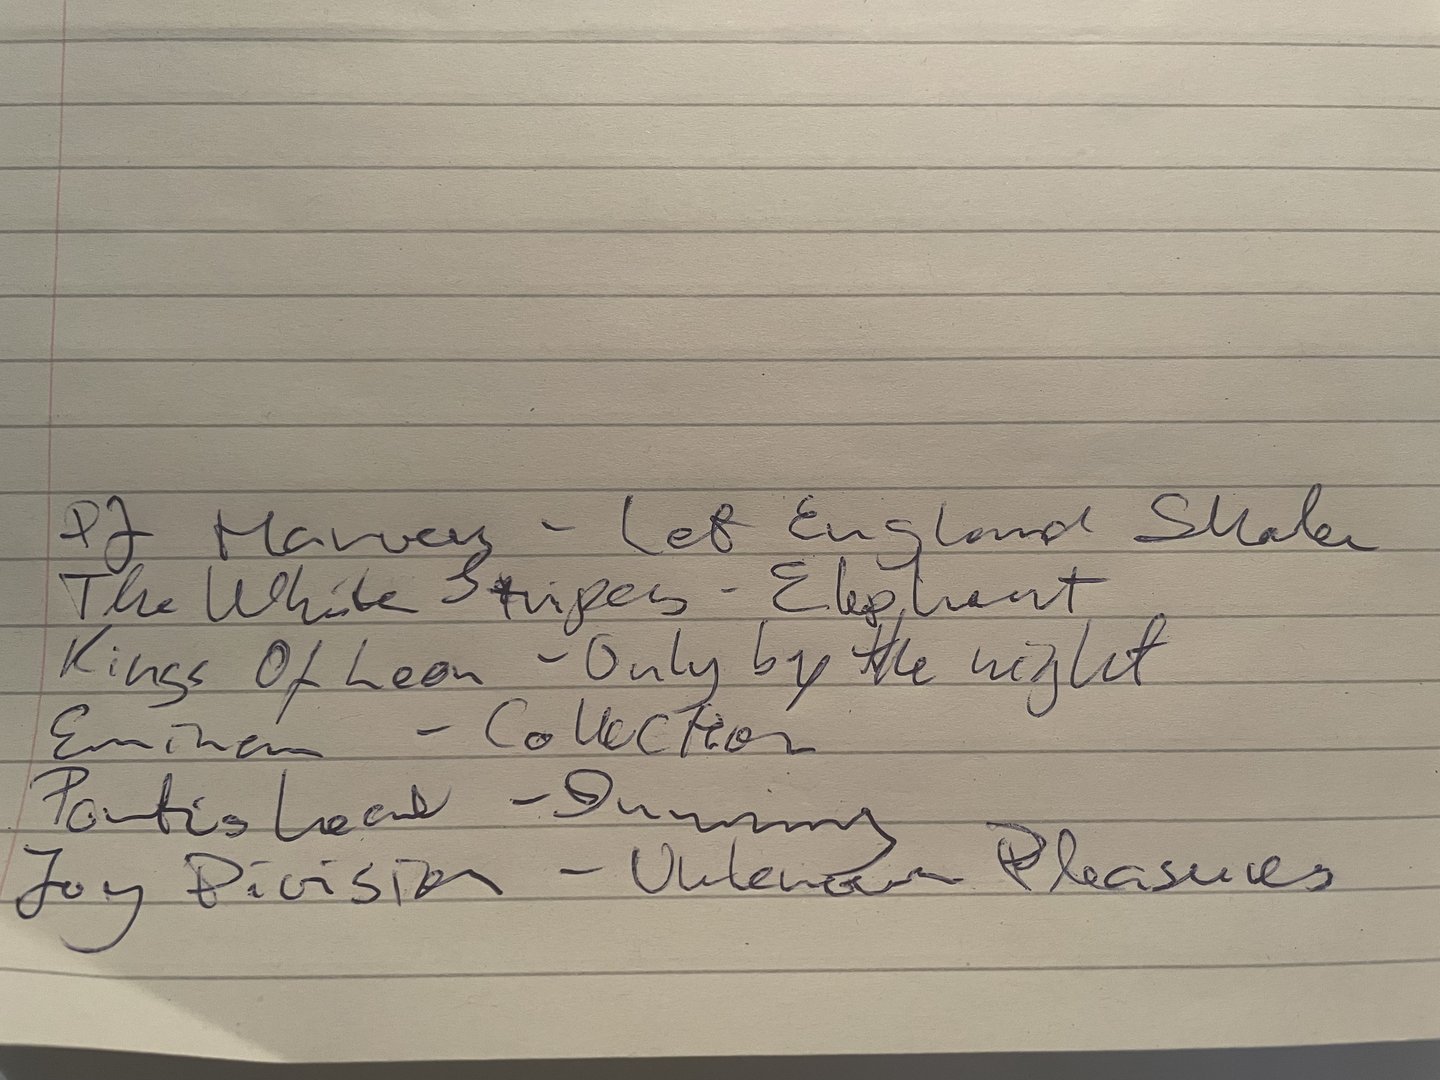 PJ Harvey - Let England Shake
The White Stripes - Elephant
Kings Of Leon - Only by the night
Eminem - Collection
Portishead - Dummy
Joy Division - Unknown Pleasures